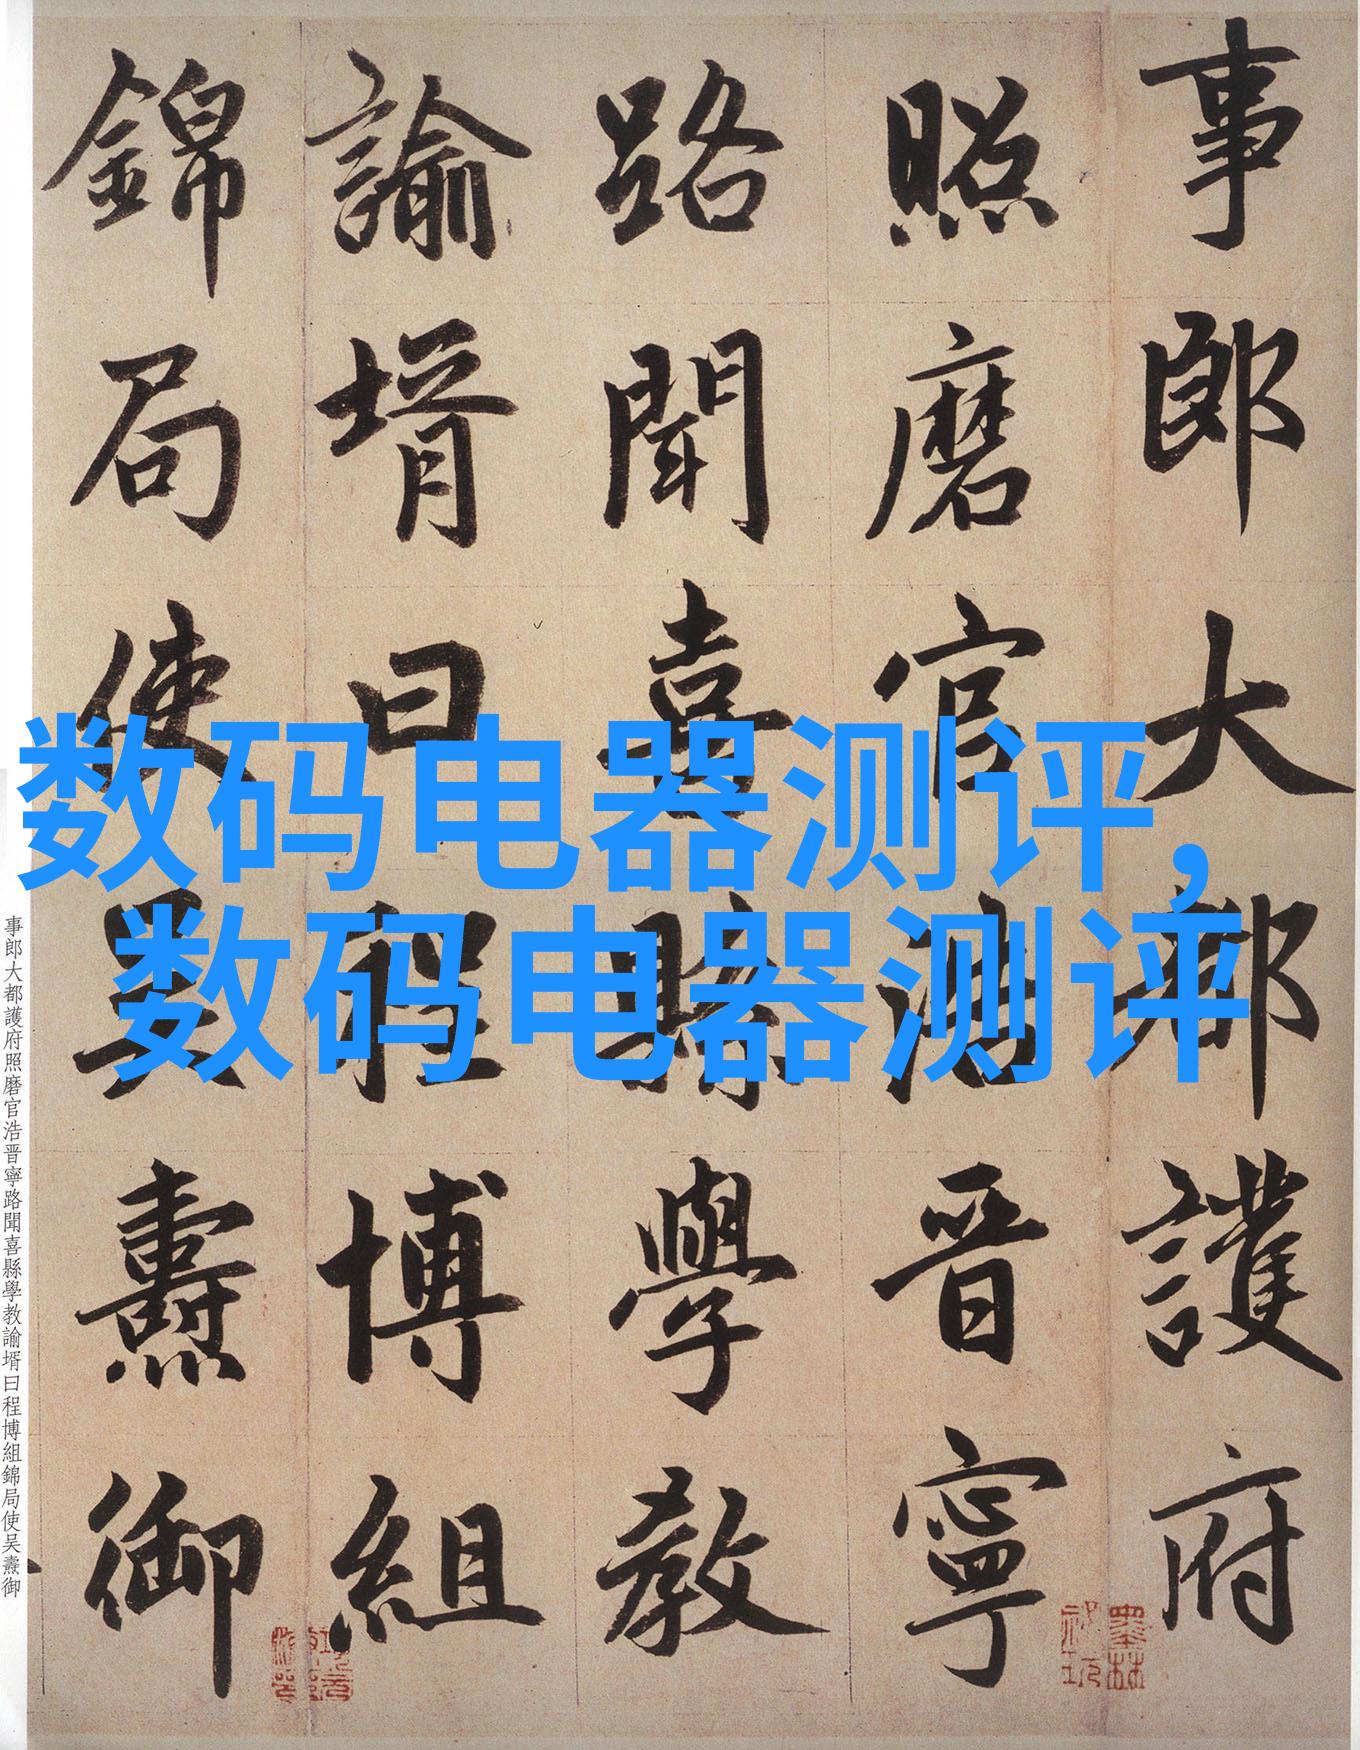 事郎大都護府
照磨官浩晋寧
路聞喜縣學教
諭壻曰程博組
錦局使吴燾御
数码电器测评,
数码电器测评
事郎大都護府照磨官浩晋寧路聞喜縣學教諭壻曰程博組錦局使吴燾御